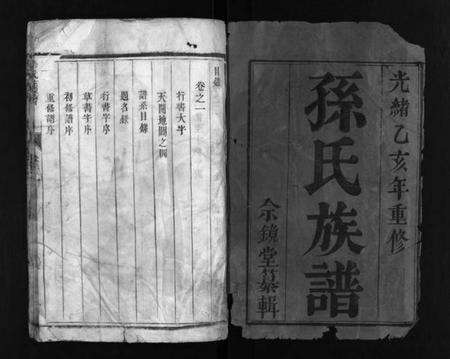 光緒乙亥年重修
孫氏族譜
佘鏡堂纂輯
目錄
卷之一
行書大半
天開地闢之圖
譜系目錄
題名錄
行書字序
草書字序
初修譜序
重修譜序